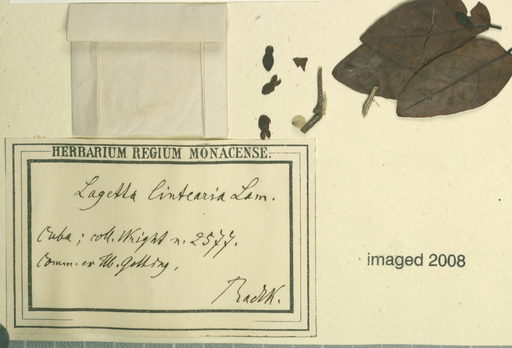 HERBARIUM REGIUM MONACENSE.
Lagetta lintearia Lam.
Cuba; coll. Wright n. 2577.
Comm. ex Hb. Gotting.
Radlk.
imaged 2008